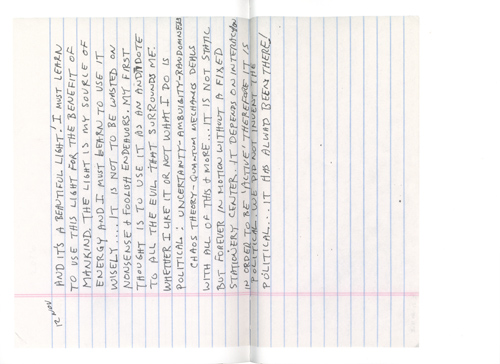 12 NOV
AND IT'S A BEAUTIFUL LIGHT! I MUST LEARN
TO USE THIS LIGHT FOR THE BENEFIT OF
MANKIND. THE LIGHT IS MY SOURCE OF
ENERGY AND I MUST LEARN TO USE IT
WISELY.... IT IS NOT TO BE WASTED ON
NONSENSE & FOOLISH ENDEAVORS. MY FIRST
THOUGHT IS TO USE IT AS AN ANTADOTE
TO ALL THE EVIL THAT SURROUNDS ME.
WHETHER I LIKE IT OR NOT WHAT I DO IS
POLITICAL: UNCERTAINTY-AMBUIGITY-RANDOMNESS
CHAOS THEORY-QUANTUM MECHANICS DEALS
WITH ALL OF THIS & MORE... IT IS NOT STATIC
BUT FOREVER IN MOTION WITHOUT A FIXED
STATIONERY CENTER. IT DEPENDS ON INTERACTION
IN ORDER TO BE 'ACTIVE' THEREFORE IT IS
POLITICAL. WE DID NOT INVENT THE
POLITICAL... IT HAS ALWAYS BEEN THERE!